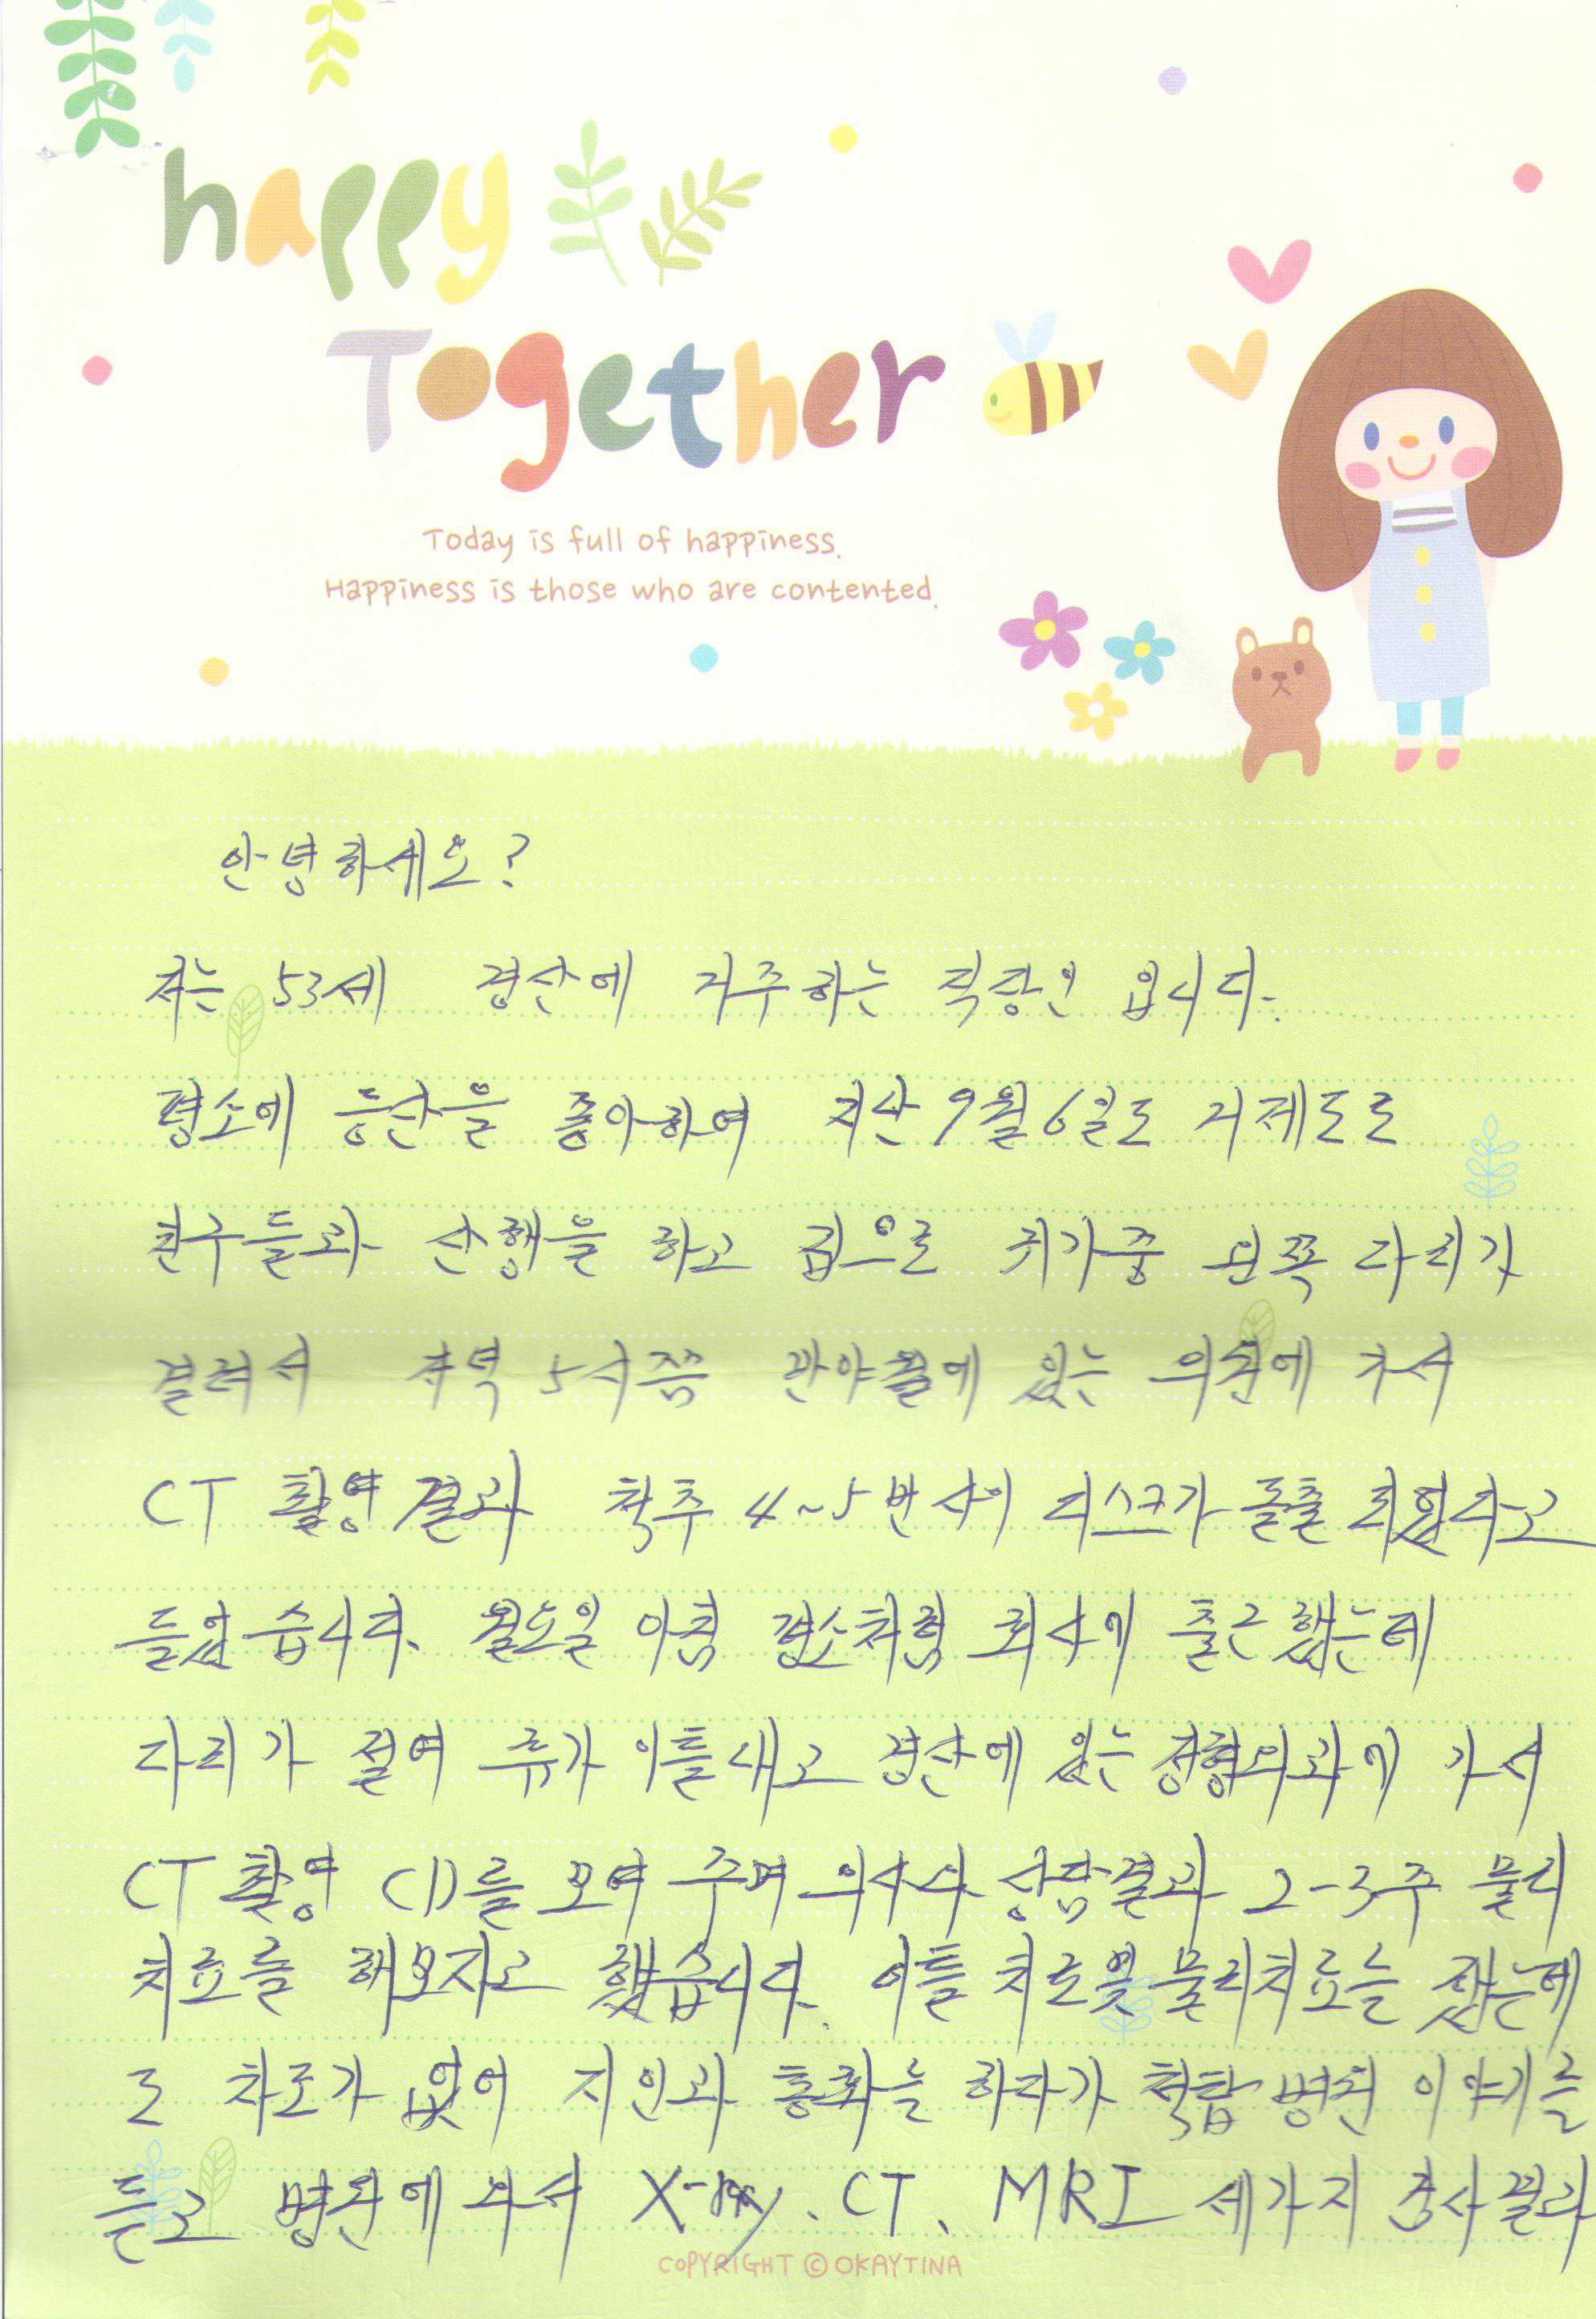 happy
Together
Today is full of happiness.
Happiness is those who are contented.
안녕하세요?
저는 53세 경산에 거주하는 직장인 입니다.
평소에 등산을 좋아하여 지난 9월 6일도 거제도로
친구들과 산행을 하고 집으로 귀가중 왼쪽 다리가
결려서 저녁 5시쯤 에 있는 의원에 가서
CT 촬영결과 척추 4~5번 사이 디스크가 돌출 되었다고
들었습니다. 월요일 아침 평소처럼 회사에 출근했는데
다리가 절여 휴가 이틀내고 경산에 있는 정형외과에 가서
CT 촬영 CD를 보여 주며 의사와 상담결과 2-3주 물리
치료를 해보자고 했습니다. 이틀 치료및 물리치료를 했는데
도 차도가 없어 지인과 통화를 하다가 척탑병원 이야기를
듣고 병원에 와서 X-ray, CT, MRI 세가지 검사결과
COPYRIGHT © OKAYTINA